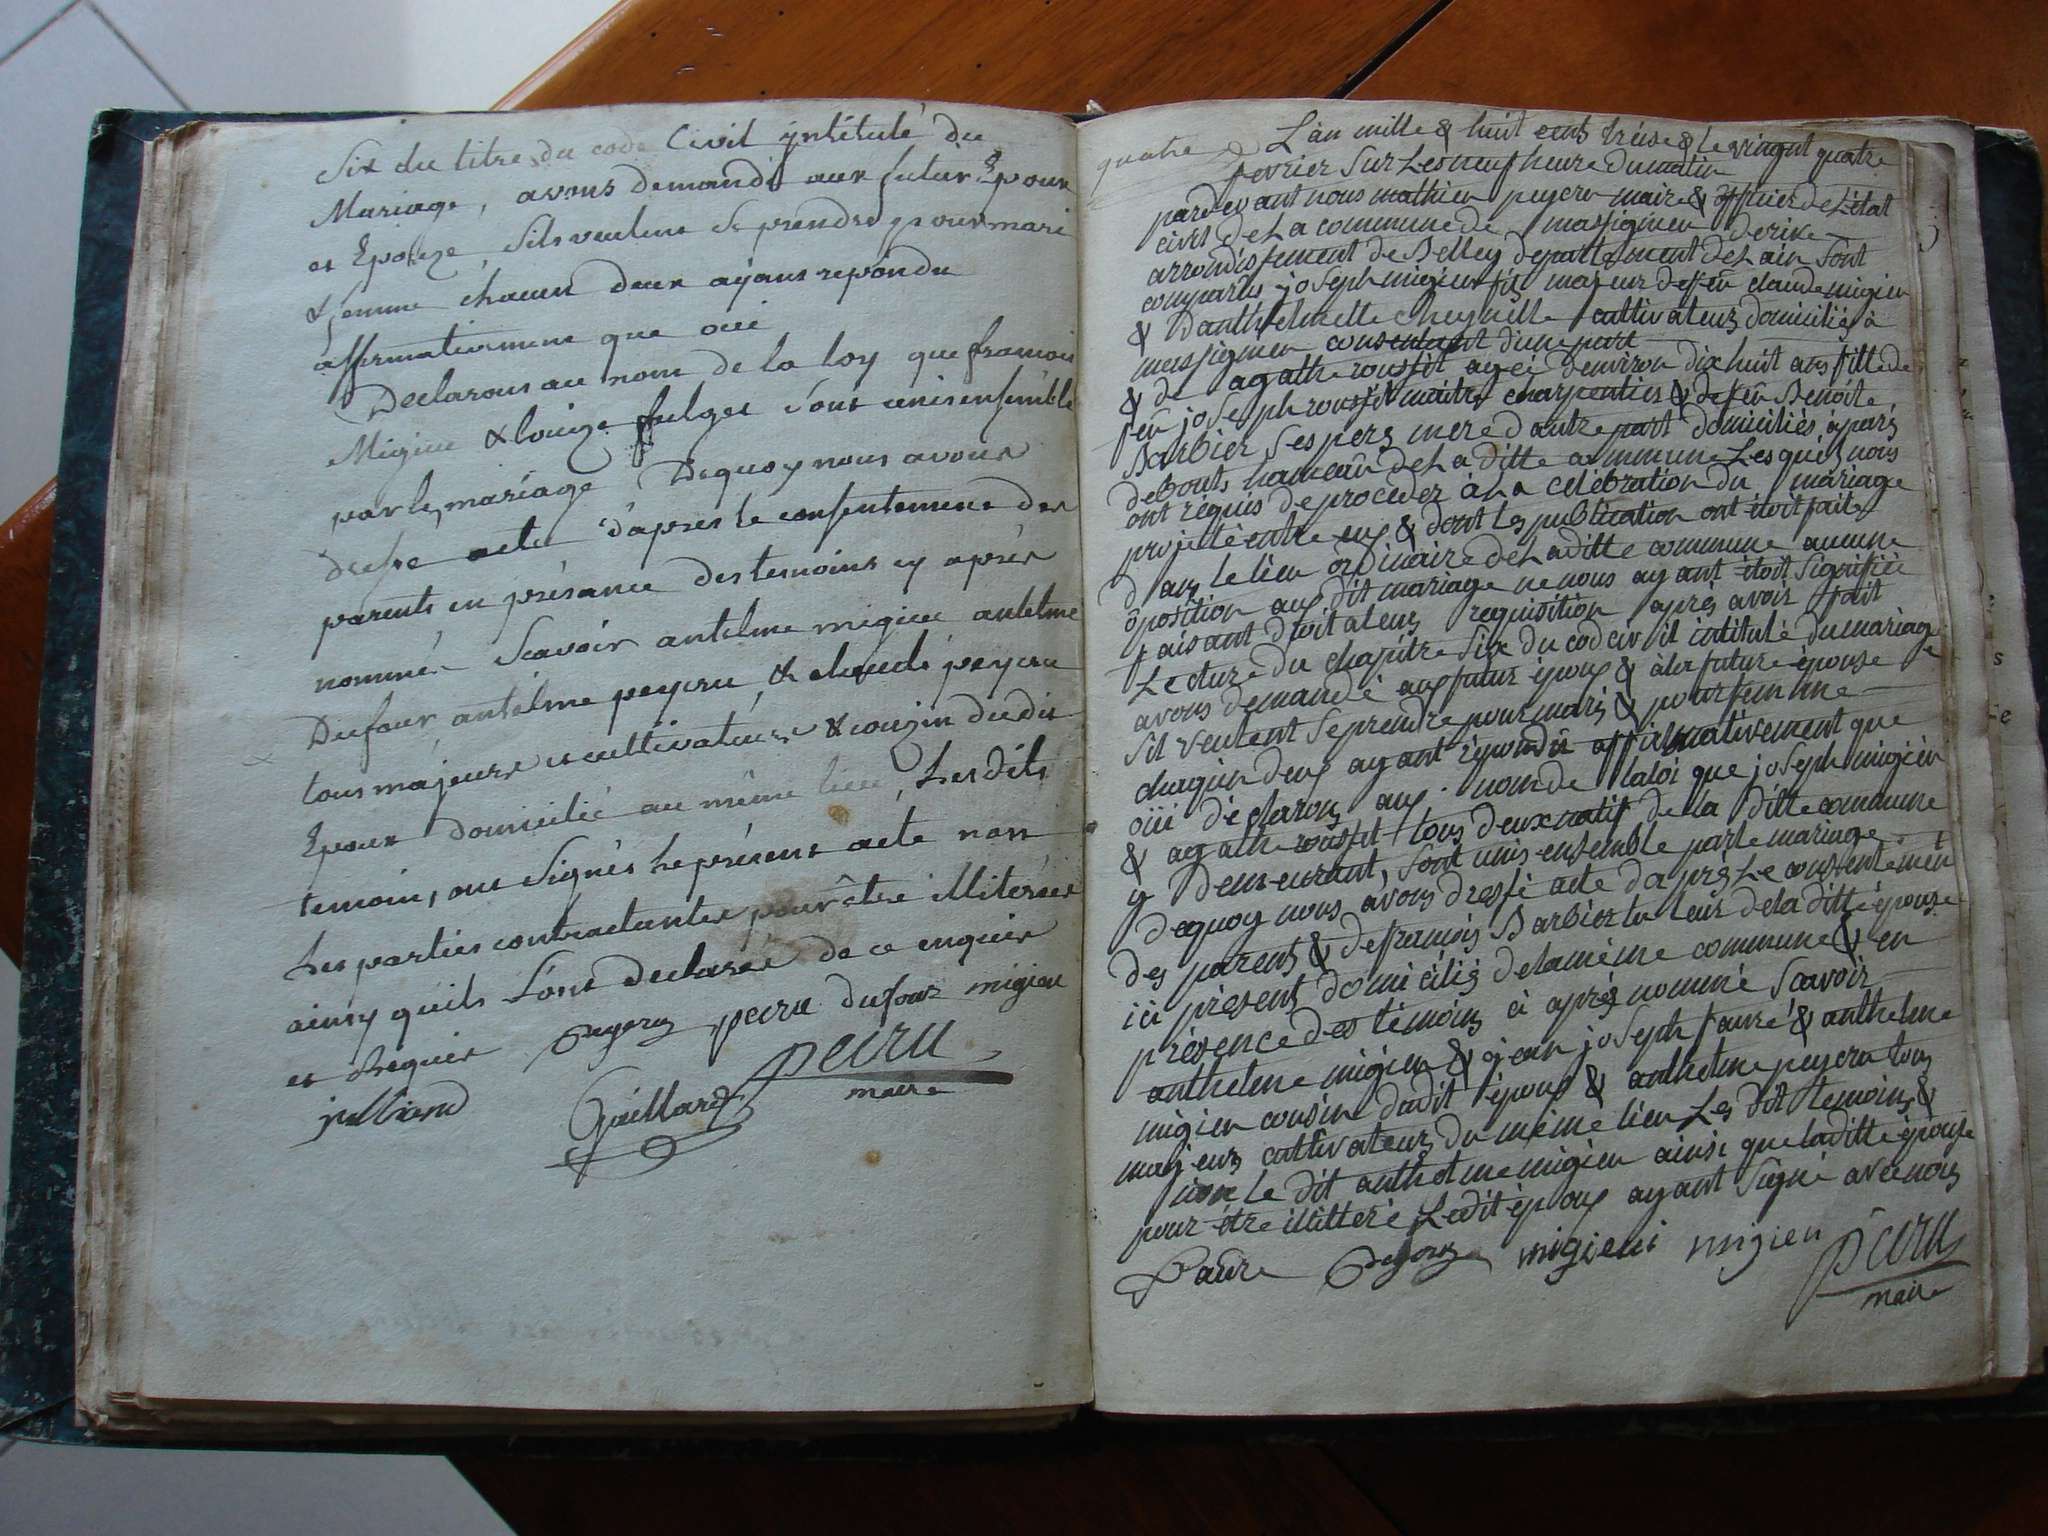 Six du titre du code Civil yntitulé du
Mariage, avons demandé aux futur Epoux
et Epouze, Sils veulent Se prendre pour mari
& femme chacun deux ayant repondu
affirmativement que oui
Declarons au nom de la loy que francois
Migieu & louize fulget Sont unis ensemble
par le mariage Dequoy nous avons
dresse acte d'apres le consentement des
parents en présance des temoins cy après
nommés Scavoir antelme migieu antelme
Dufour, antelme peycru, & claude peycru
tous majeurs et cultivateurs & couzin dudit
Epoux domicilié au même lieu, Les dits
temoins, ont Signés Le présent acte non
Les parties contractantes pour être illiterées
ainsy quils Lont declarés de ce enquis
et Requis peycru pecru dufour migieu
julliand Gaillard pecru
maire
quatre L'an mille & huit cents treise & le vingnt quatre
fevrier Sur Les neuf heure du matin
pardevant nous mathieu peycru maire & officier de L'état
civil de La commune de massignieu derive
arrondissement de Belley departement de L'ain Sont
comparus joseph migieu fils majeur de feu claude migieu
& d'anthelmette cultivateurs domiciliés à
massignieu consentant d'une part
& de agathe rousset agée denviron dix huit ans fille de
feu joseph rousset maitre charpentier & de feu Benoite
Barbier Ses pere mere d'autre part domiciliés à parcs
debouts hameau de La ditte commune Lesquels nous
ont réquis de proceder à La celebration du mariage
projetté entre eux & dont les publication ont étoit faites
dans le lieu ordinaire de La ditte commune aucune
oposition aux dit mariage ne nous ayant étoit Signifiée
faisant droit a leurs requisition après avoir fait
Lecture du chapitre Six du cod civil intitulé du mariage
avons demandé aux futur époux & à la future épouse
Sil veulent Se prendre pour maris & pour femme
chaquin deux ayant répondu affirmativement que
oui déclarons aux nom de la loi que joseph migieu
& agathe rousset tous deux natif de la ditte commune
y demeurant, Sont unis ensemble par le mariage
dequoy nous avons dressé acte d'après Le consentement
des parents & de francois Barbier tuteur de la ditte épouze
ici présent domiciliés de la même commune & en
présence des témoins ci après nommé Scavoir
anthelme migieu & jean joseph fauré & anthelme
migieu cousin dudit époux & anthelme peycru tous
majeurs cultivateurs du même lieu Les dit temoins &
non le dit anthelme migieu ainsi que laditte épouse
pour être illitteré Ledit époux ayant Signé avec nous
faure peycru migieu migieu pecru
maire